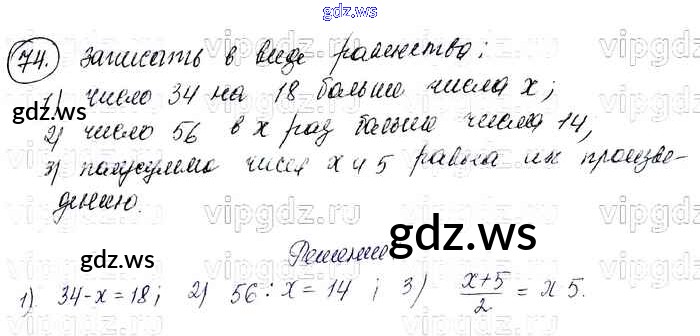 gdz.ws
74. Записать в виде равенства:
1) число 34 на 18 больше числа x;
gdz.ws
2) число 56 в x раз больше числа 14,
3) полусумма чисел x и 5 равна их произве-
дению.
gdz.ws
Решение
1) 34-x=18; 2) 56:x=14; 3) \frac{x+5}{2} = x 5.
vipgdz.ru
gdz.ws